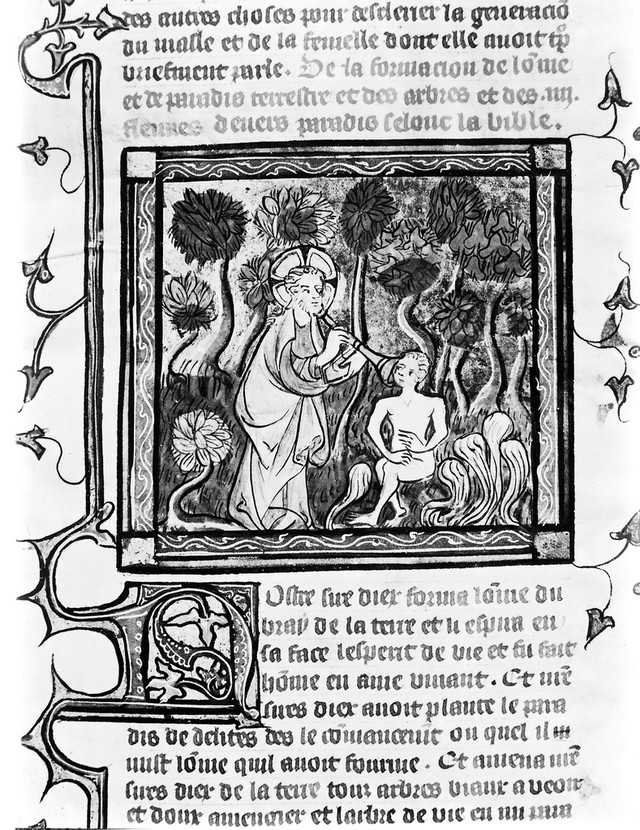 des autres choses pour desclerer la generaciõ
du masle et de la femelle dont elle auoit
briefment parle. De la formacion de lõme
et de paradis terrestre et des arbres et des .iiii.
fleuues deuers paradis selonc la bible.
Nostre sire diex forma lõme du
bray de la terre et li espira en
sa face lesperit de vie et fu fait
hõme en ame viuant. Et
sires diex auoit plante le para
dis de delites des le cõmancement ou quel il
mist lõme quil auoit fourme. Et amena
sires diex de la terre tous arbres biaux a veoir
et doux amengier et larbre de vie en mi para